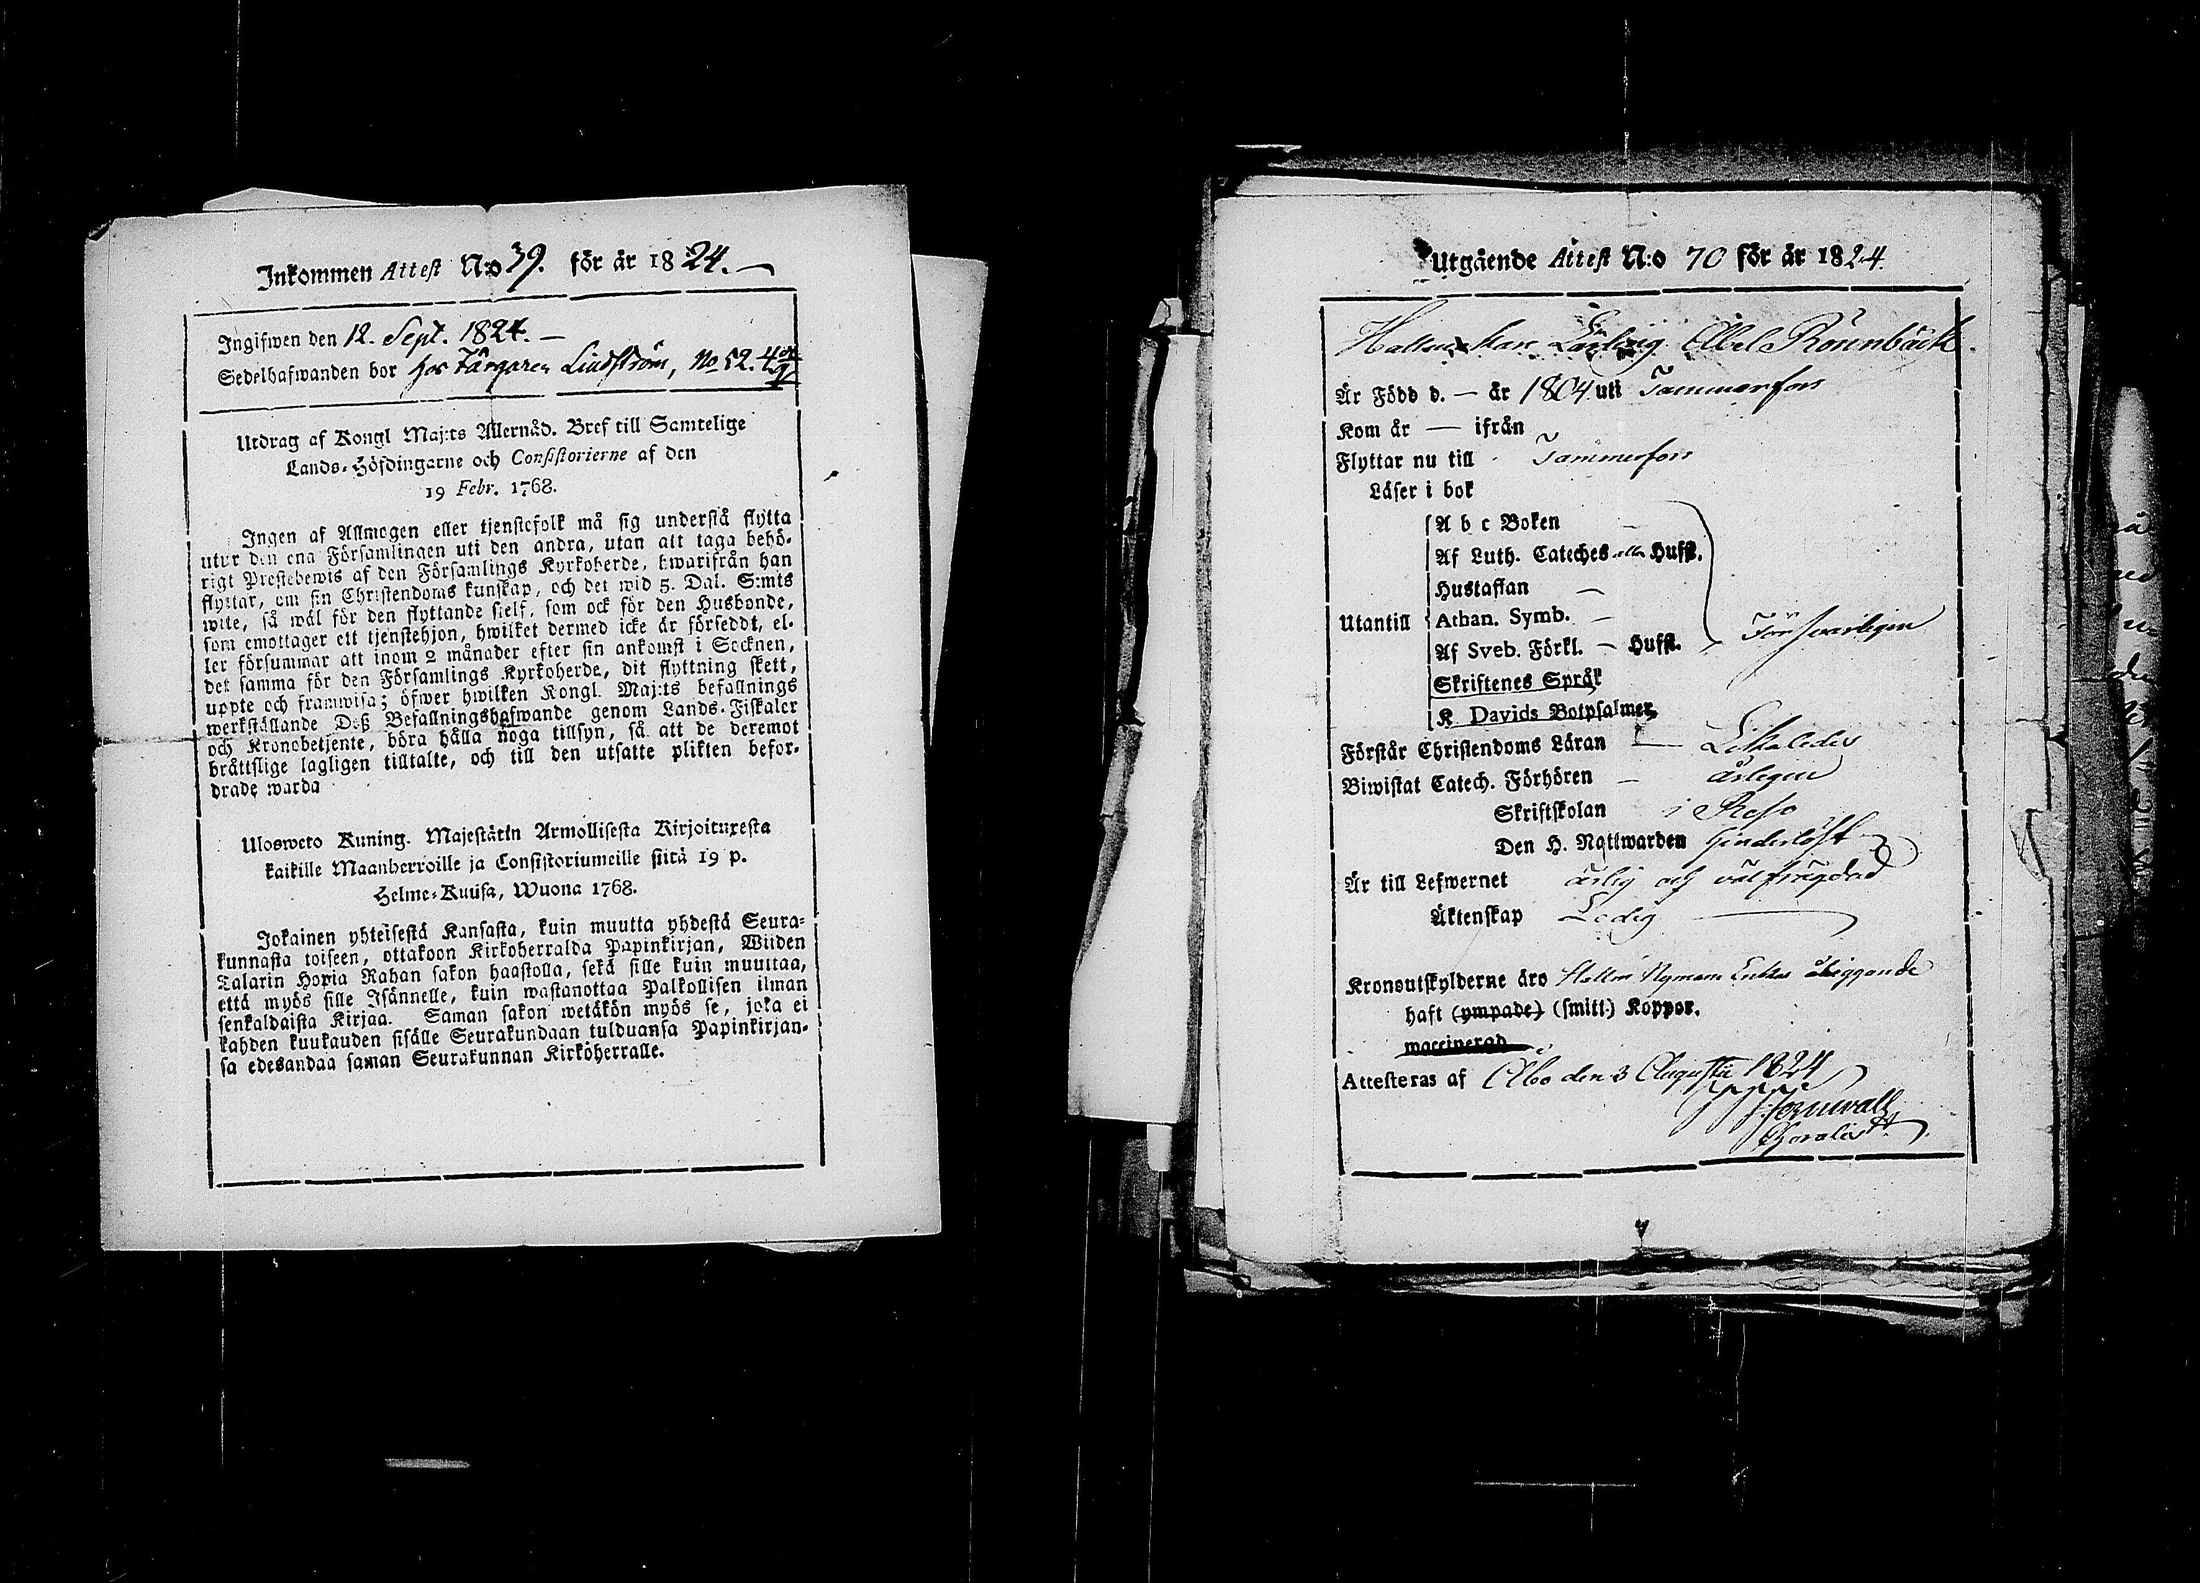 Inkommen Attest N:o 39. för år 1824.
Ingifwen den 12. Sept. 1824. —
Sedelhafwanden bor hos Färgaren Lindström, No 52. 4
Utdrag af Kongl Maj:ts Allernåd. Bref till Samtelige
Lands-Höfdingarne och Consistorierne af den
19 Febr. 1768.
Ingen af Allmogen eller tjenstefolk må sig understå flytta
utur den ena Församlingen uti den andra, utan att taga behö-
rigt Prestebewis af den Församlings Kyrkoherde, hwarifrån han
flyttar, om sin Christendoms kunskap, och det wid 5. Dal. S:mts
wite, så wäl för den flyttande sielf, som ock för den Husbonde,
som emottager ett tjenstehjon, hwilket dermed icke är försedt, el-
ler försummar att inom 2 månader efter sin ankomst i Socknen,
det samma för den Församlings Kyrkoherde, dit flyttning skett,
uppte och framwisa; öfwer hwilken Kongl. Maj:ts befallnings
werkställande Deß Befallningshafwande genom Lands-Fiskaler
och Kronobetjente, böra hålla noga tillsyn, så att de deremot
bråttslige lagligen tilltalte, och till den utsatte plikten befor-
drade warda
Ulosweto Kuning. Majestätin Armollisesta Kirjoituxesta
kaikille Maanherroille ja Consistoriumeille siitä 19 p.
Helme-Kuusa, Wuona 1768.
Jokainen yhteisestä Kansasta, kuin muutta yhdestä Seura-
kunnasta toiseen, ottakoon Kirkoherralda Papinkirjan, Wiiden
Talarin Hopia Rahan sakon haastolla, sekä sille kuin muuttaa,
että myös sille Isännelle, kuin wastanottaa Palkollisen ilman
senkaldaista Kirjaa. Saman sakon wetäkön myös se, joka ei
kahden kuukauden sisälle Seurakundaan tulduansa Papinkirjan-
sa edesandaa saman Seurakunnan Kirköherralle.
Utgående Attest N:o 70 för år 1824.
Lärling Abel Rönnbäck.
Är Född d. — år 1804 uti Tammerfors
Kom år — ifrån
Flyttar nu till Tammerfors
Läser i bok
A b c Boken
Af Luth. Cateches alla Hufst.
Hustaflan —
Utantill Athan. Symb. — Försvarligen
Af Sveb. Förkl. — Hufst.
Skriftenes Språk
K. Davids Botpsalmer
Förstår Christendoms Läran — Likaledes
Biwistat Catech. Förhören — årligen
Skriftskolan i Reso
Den H. Nattwarden hinderlöst
Är till Lefwernet ärlig och välfrägdad
Äktenskap Ledig
Kronoutskylderne äro Nyman Enka åliggande
haft (ympade) (smitt.) Koppor.
waccinerad
Attesteras af Åbo den 3 Augusti 1824